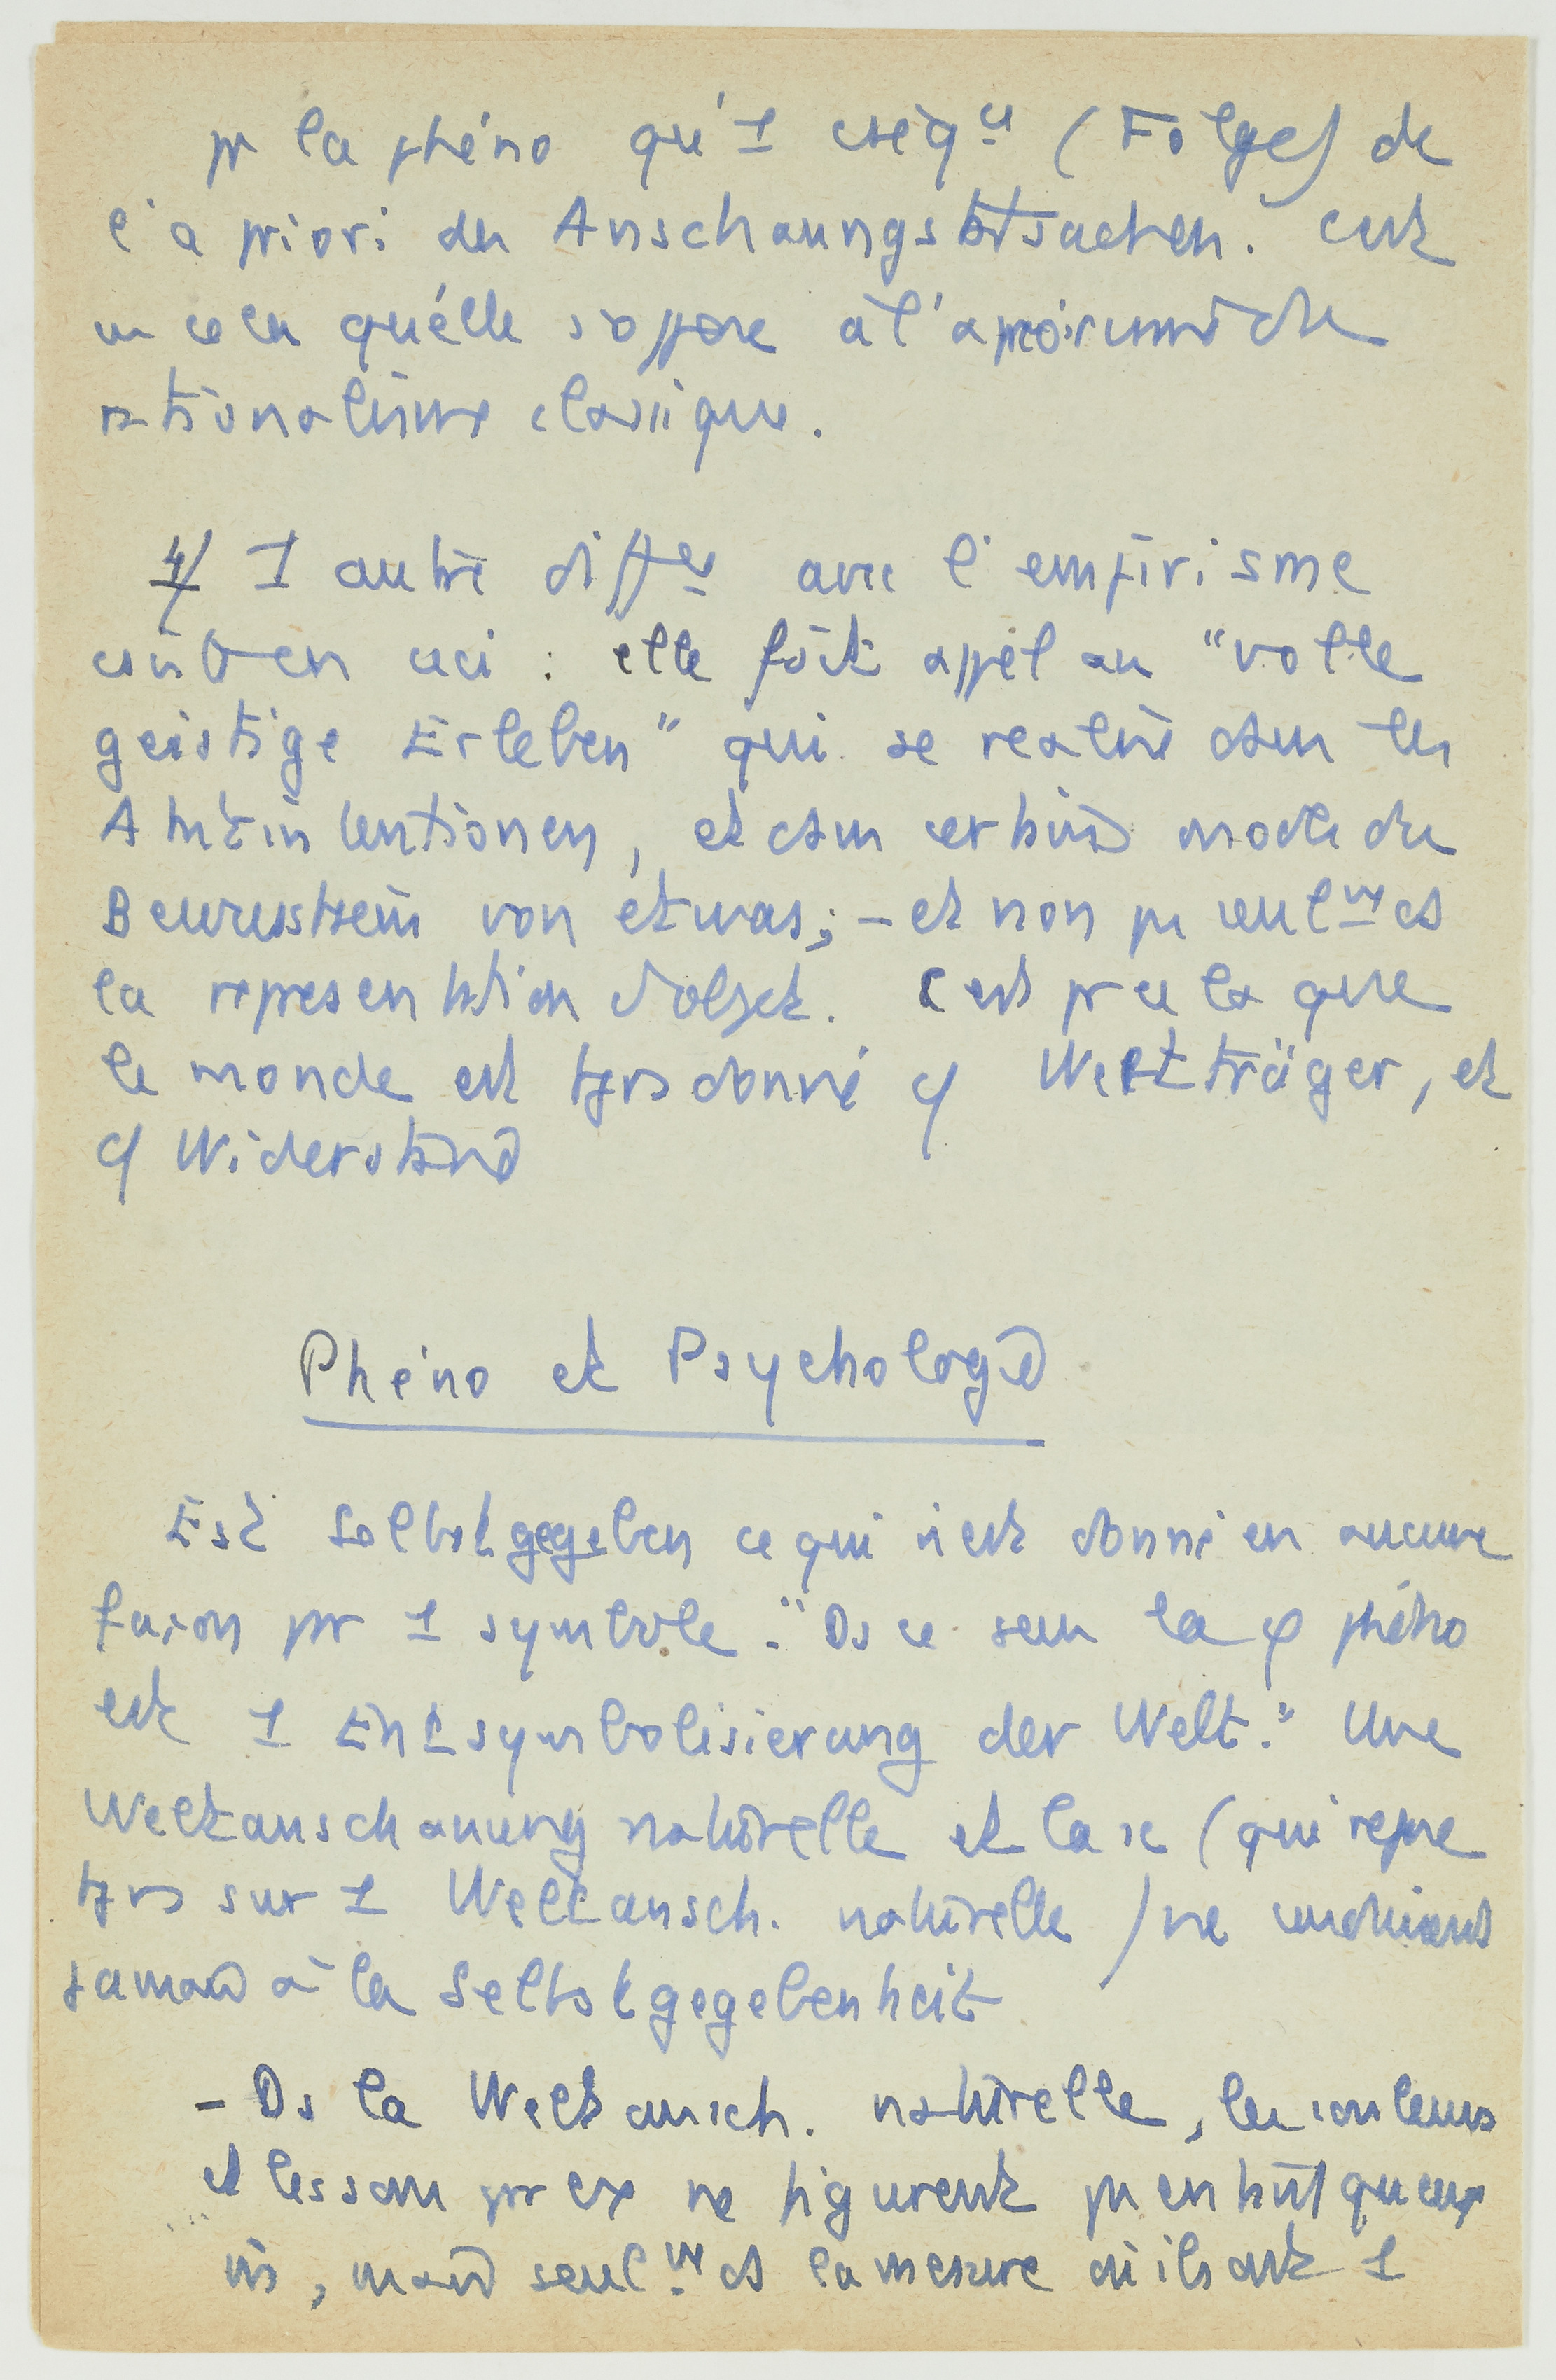 pr la phéno qu'1 cséqce (Folge) de
l'a priori des Anschauungstatsachen. C'est
en cela qu'elle s'oppose à l'apriorisme du
rationalisme classique.
4/ 1 autre diffce avec l'empirisme
csiste en ceci : elle fait appel au "volle
geistige Erleben" qui se realise dans les
Aktintentionen, et dans certains modes du
Bewusstsein von etwas; - et non pas seulmt ds
la representation d'objet. C'est pr cela que
le monde est tjrs donné c/ Wertträger, et
c/ Widerstand
Phéno et Psychologie
Est Selbstgegeben ce qui n'est donné en aucune
façon par 1 symbole. "Ds ce sens la φ phéno
est 1 Entsymbolisierung der Welt." Une
Weltanschauung naturelle et la sc (qui repose
tjrs sur 1 Weltansch. naturelle) ne conduisent
jamais à la Selbstgegebenheit
- Ds la Weltansch. naturelle, les couleurs
et les sons par ex ne figurent pas en tant qu'eux
ms, mais seulmt ds la mesure où ils ont 1